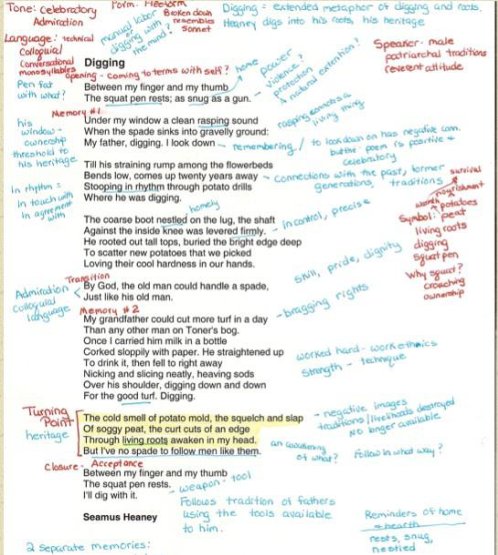 Tone: Celebratory
Admiration
Form- Freeform
Broken down
resembles
Sonnet
Digging = extended metaphor of digging and roots.
Heaney digs into his roots, his heritage
Language: technical
Colloquial
Conversational
monosyllables
manual labor
digging with
the mind?
Speaker- male
patriarchal traditions
reverent attitude
Digging
Opening - coming to terms with self?
home
power
violence?
protection
A natural extention?
Pen fat
with what?
Between my finger and my thumb
The squat pen rests; as snug as a gun.
Memory #1
Under my window a clean rasping sound
rasping connotes a
living thing
his
window -
ownership
threshold to
his heritage
When the spade sinks into gravelly ground:
My father, digging. I look down
remembering / to look down on has negative conn.
but the poem is positive +
celebratory
Till his straining rump among the flowerbeds
Bends low, comes up twenty years away
Stooping in rhythm through potato drills
Where he was digging.
connections with the past, former
generations, traditions
survival
nourishment
in rhythm =
in touch with
in agreement
with
homely
Symbol: peat
potatoes
living roots
digging
squat pen
Why squat?
crouching
ownership
The coarse boot nestled on the lug, the shaft
Against the inside knee was levered firmly.
in control, precise
He rooted out tall tops, buried the bright edge deep
To scatter new potatoes that we picked
Loving their cool hardness in our hands.
skill, pride, dignity
Transition
Admiration
Colloquial
language
By God, the old man could handle a spade,
Just like his old man.
- bragging rights
Memory #2
My grandfather could cut more turf in a day
Than any other man on Toner's bog.
Once I carried him milk in a bottle
Corked sloppily with paper. He straightened up
To drink it, then fell to right away
Nicking and slicing neatly, heaving sods
Over his shoulder, digging down and down
For the good turf. Digging.
worked hard - work ethics
strength - technique
Turning
Point
heritage
The cold smell of potato mold, the squelch and slap
Of soggy peat, the curt cuts of an edge
Through living roots awaken in my head.
But I've no spade to follow men like them.
- negative images
traditions/livelihoods destroyed
no longer available
an awakening
of what?
Follow in what way?
Closure - Acceptance
Between my finger and my thumb
The squat pen rests.
I'll dig with it.
- weapon - tool
Follows tradition of fathers
using the tools available
to him.
Seamus Heaney
Reminders of home
+ hearth
nests, snug,
nestled
2 separate memories: